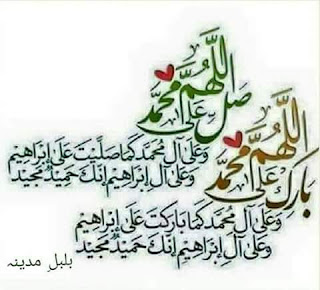 اللَّهُمَّ
صَلِّ عَلَى مُحَمَّدٍ
وَعَلَى آلِ مُحَمَّدٍ كَمَا صَلَّيْتَ عَلَى إِبْرَاهِيمَ
وَعَلَى آلِ إِبْرَاهِيمَ إِنَّكَ حَمِيدٌ مَجِيدٌ
اللَّهُمَّ
بَارِكْ عَلَى مُحَمَّدٍ
وَعَلَى آلِ مُحَمَّدٍ كَمَا بَارَكْتَ عَلَى إِبْرَاهِيمَ
وَعَلَى آلِ إِبْرَاهِيمَ إِنَّكَ حَمِيدٌ مَجِيدٌ
بلبلِ مدینہ